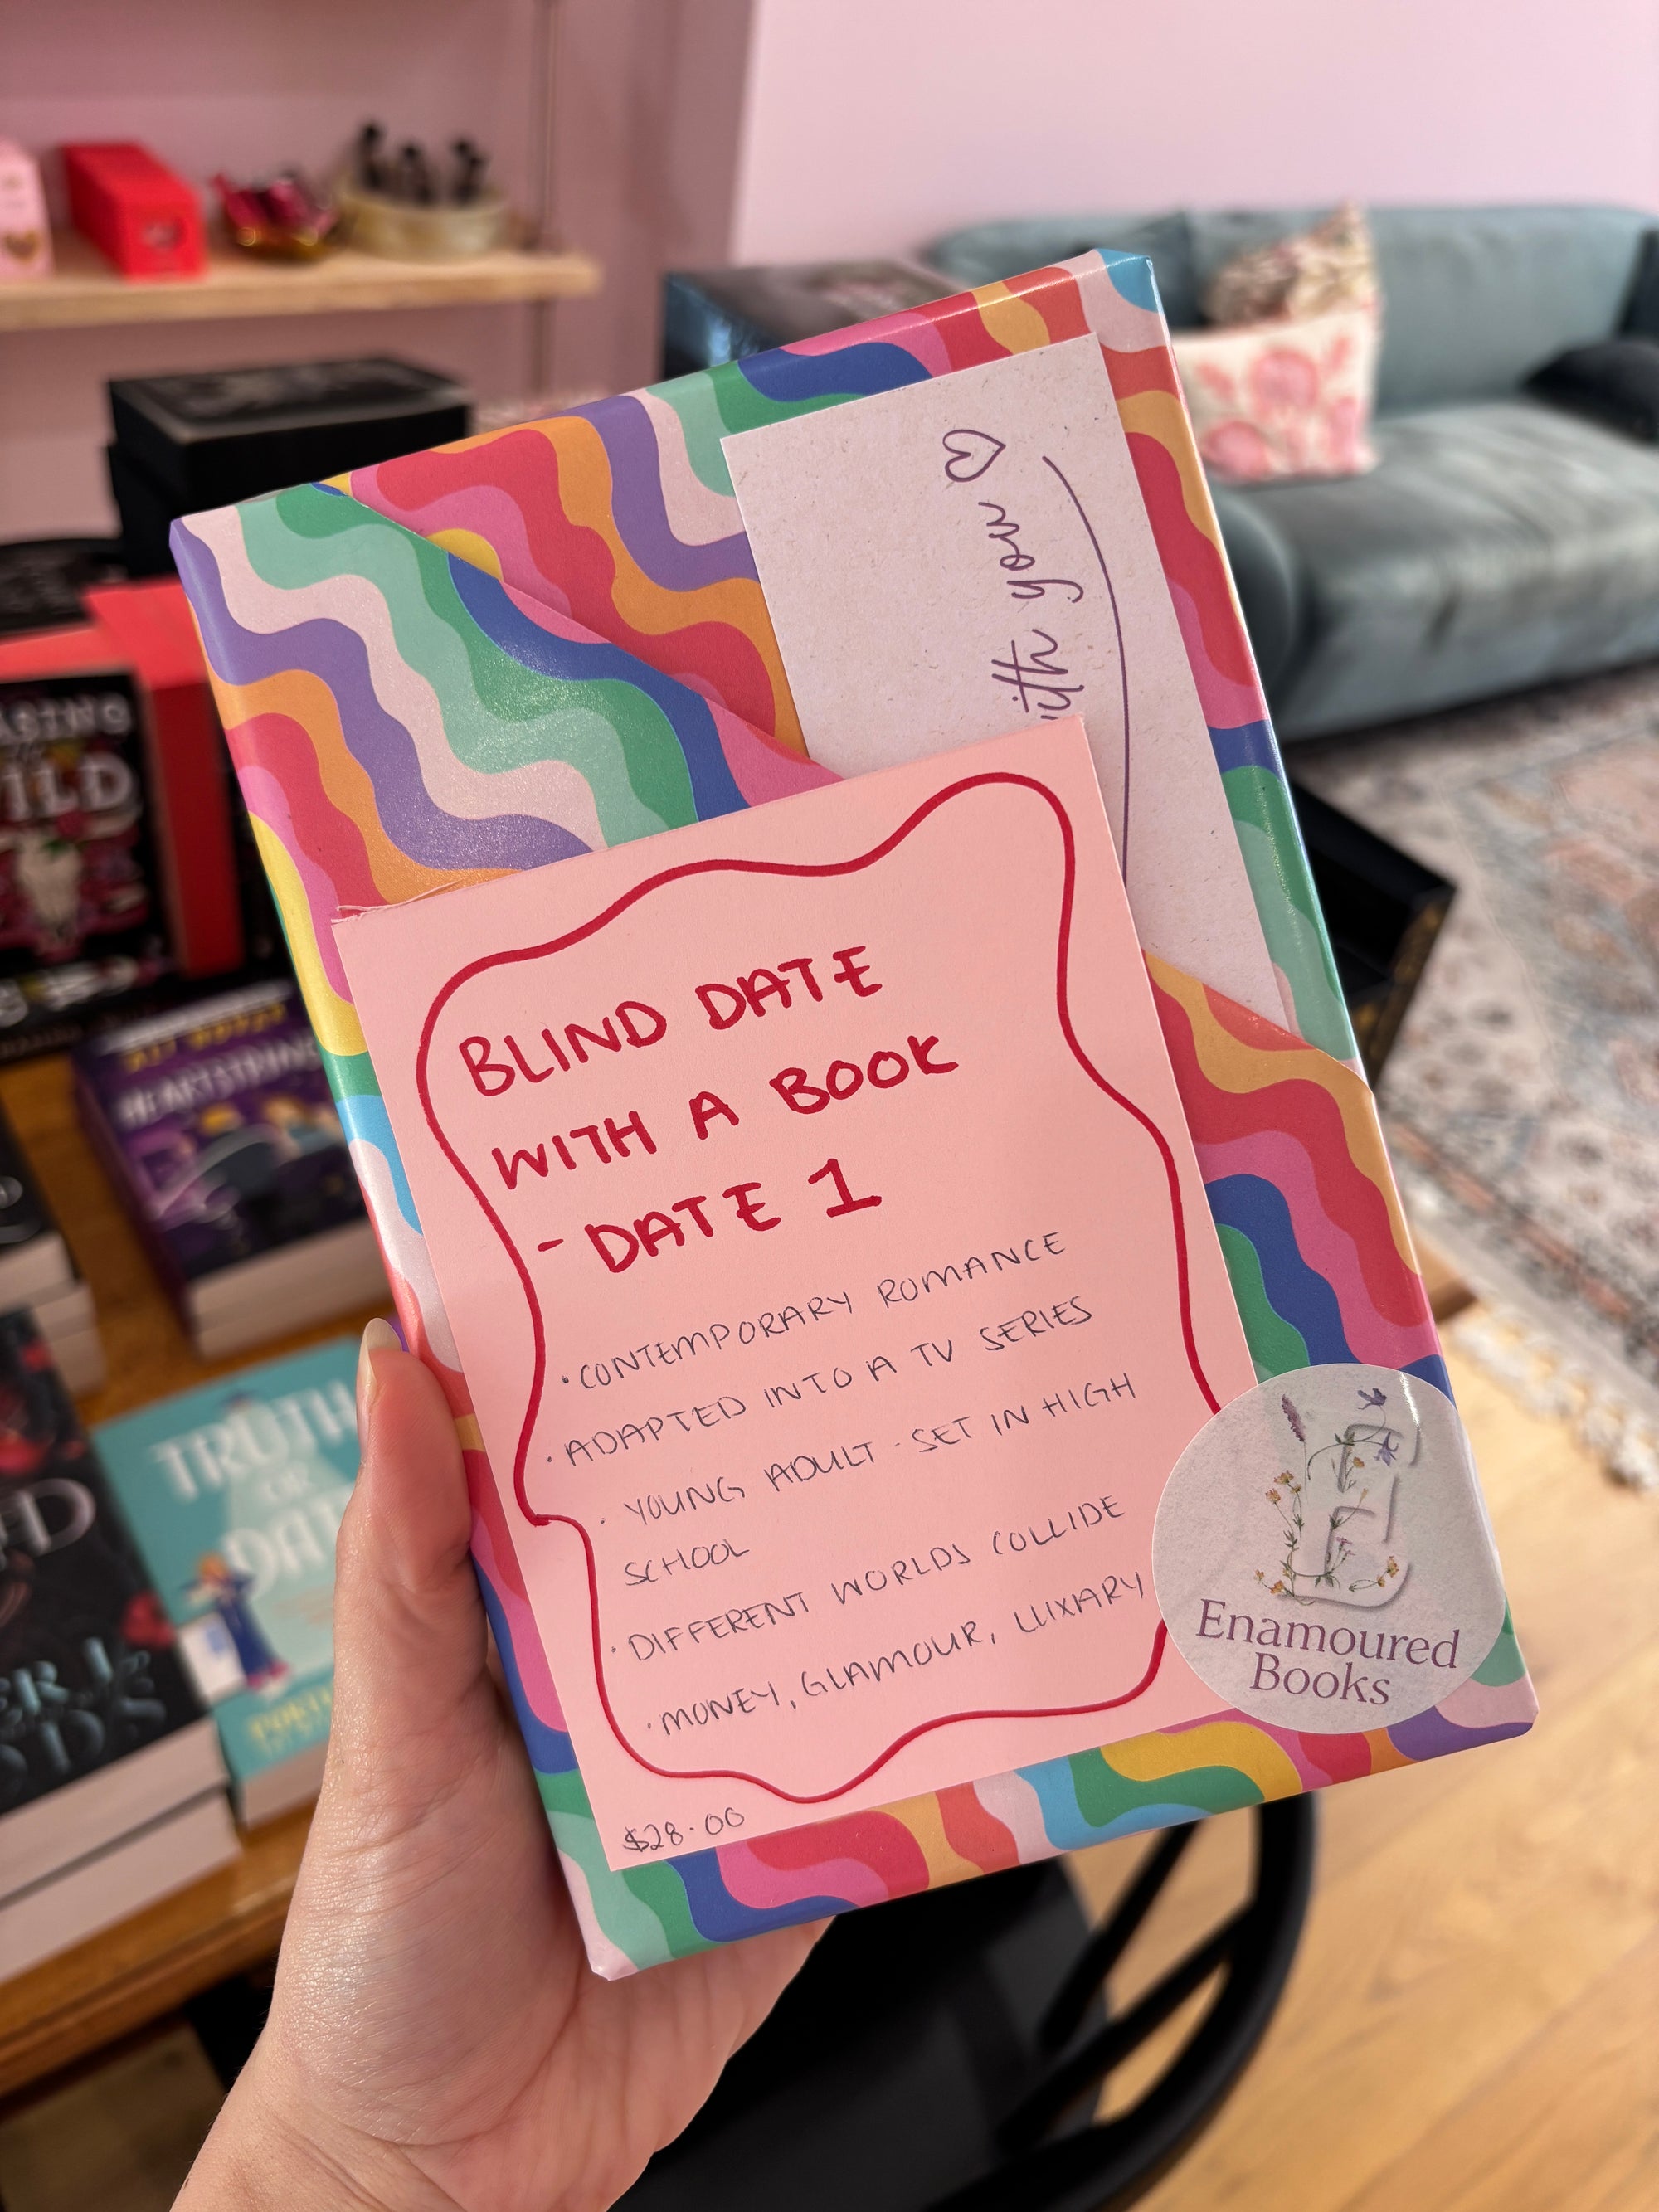 with you ♡
BLIND DATE
WITH A BOOK
- DATE 1
· CONTEMPORARY ROMANCE
· ADAPTED INTO A TV SERIES
· YOUNG ADULT - SET IN HIGH
SCHOOL
· DIFFERENT WORLDS COLLIDE
· MONEY, GLAMOUR, LUXIARY
$28.00
E
Enamoured
Books
HEARTSTRINGS
TRUTH
OR